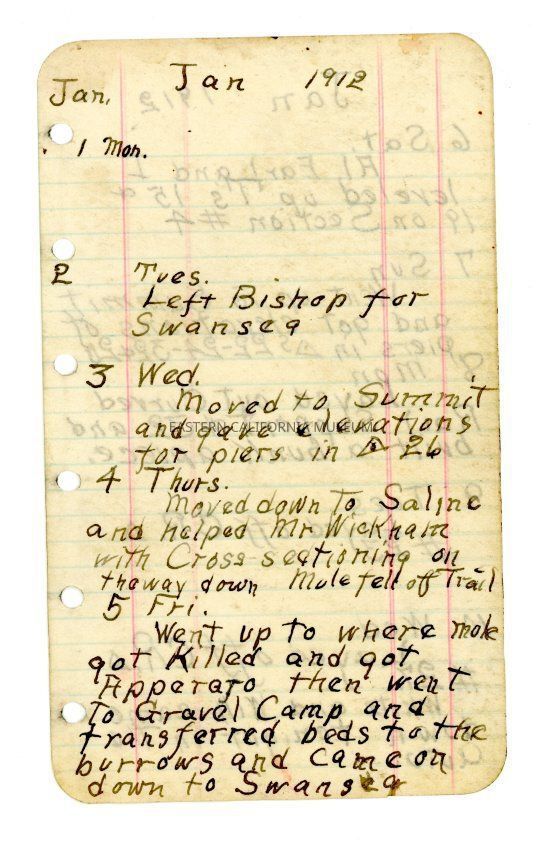 Jan 1912
Jan.
1 Mon.
2 Tues.
Left Bishop for
Swansea
3 Wed.
Moved to Summit
and gave elevations
EASTERN CALIFORNIA MUSEUM
for piers in △ 26
4 Thurs.
Moved down to Saline
and helped Mr Wickham
with Cross-sectioning on
the way down Mule fell off Trail
5 Fri.
Went up to where mole
got Killed and got
Apperajo then went
To Gravel Camp and
transferred beds to the
burrows and came on
down to Swansea